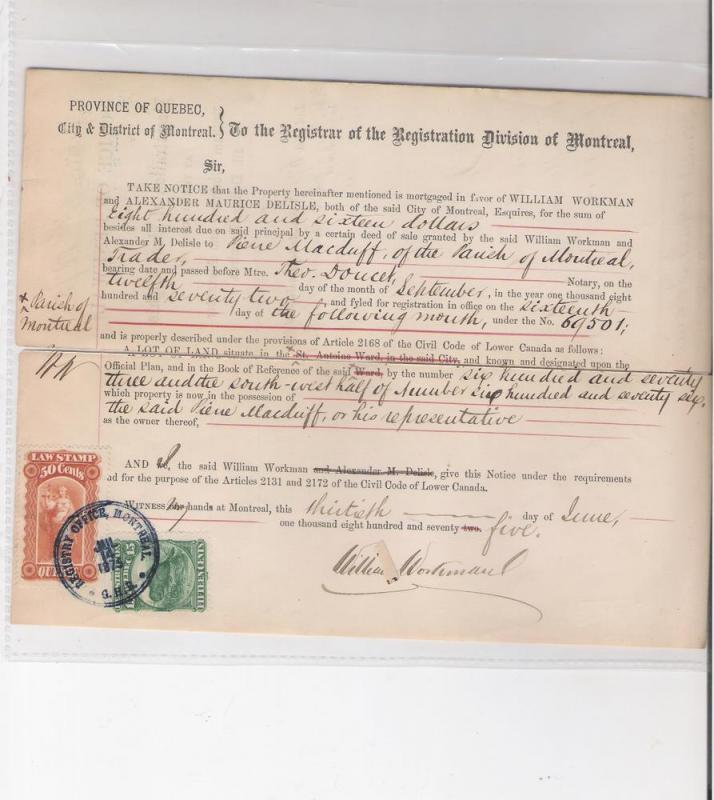 PROVINCE OF QUEBEC,
City & District of Montreal. } To the Registrar of the Registration Division of Montreal,
Sir,
TAKE NOTICE that the Property hereinafter mentioned is mortgaged in favor of WILLIAM WORKMAN
and ALEXANDER MAURICE DELISLE, both of the said City of Montreal, Esquires, for the sum of
Eight hundred and sixteen dollars
besides all interest due on said principal by a certain deed of sale granted by the said William Workman and
Alexander M. Delisle to Pierre Macduff, of the Parish of Montreal,
Trader,
bearing date and passed before Mtre. Theo. Doucet, Notary, on the
twelfth day of the month of September, in the year one thousand eight
hundred and seventy two, and fyled for registration in office on the sixteenth
day of the following month, under the No. 69501;
x Parish of
Montreal
and is properly described under the provisions of Article 2168 of the Civil Code of Lower Canada as follows:
A LOT OF LAND situate in the x St. Antoine Ward, in the said City, and known and designated upon the
Official Plan, and in the Book of Reference of the said Ward, by the number six hundred and seventy
three and the south-west half of Number six hundred and seventy six.
which property is now in the possession of
the said Pierre Macduff, or his representative
as the owner thereof,
AND I, the said William Workman and Alexander M. Delisle, give this Notice under the requirements
and for the purpose of the Articles 2131 and 2172 of the Civil Code of Lower Canada.
WITNESS my hands at Montreal, this thirtieth day of June,
one thousand eight hundred and seventy two. five.
William Workman
LAW STAMP
50 Cents
REGISTRY OFFICE, MONTREAL
1875
FIFTEEN CENTS